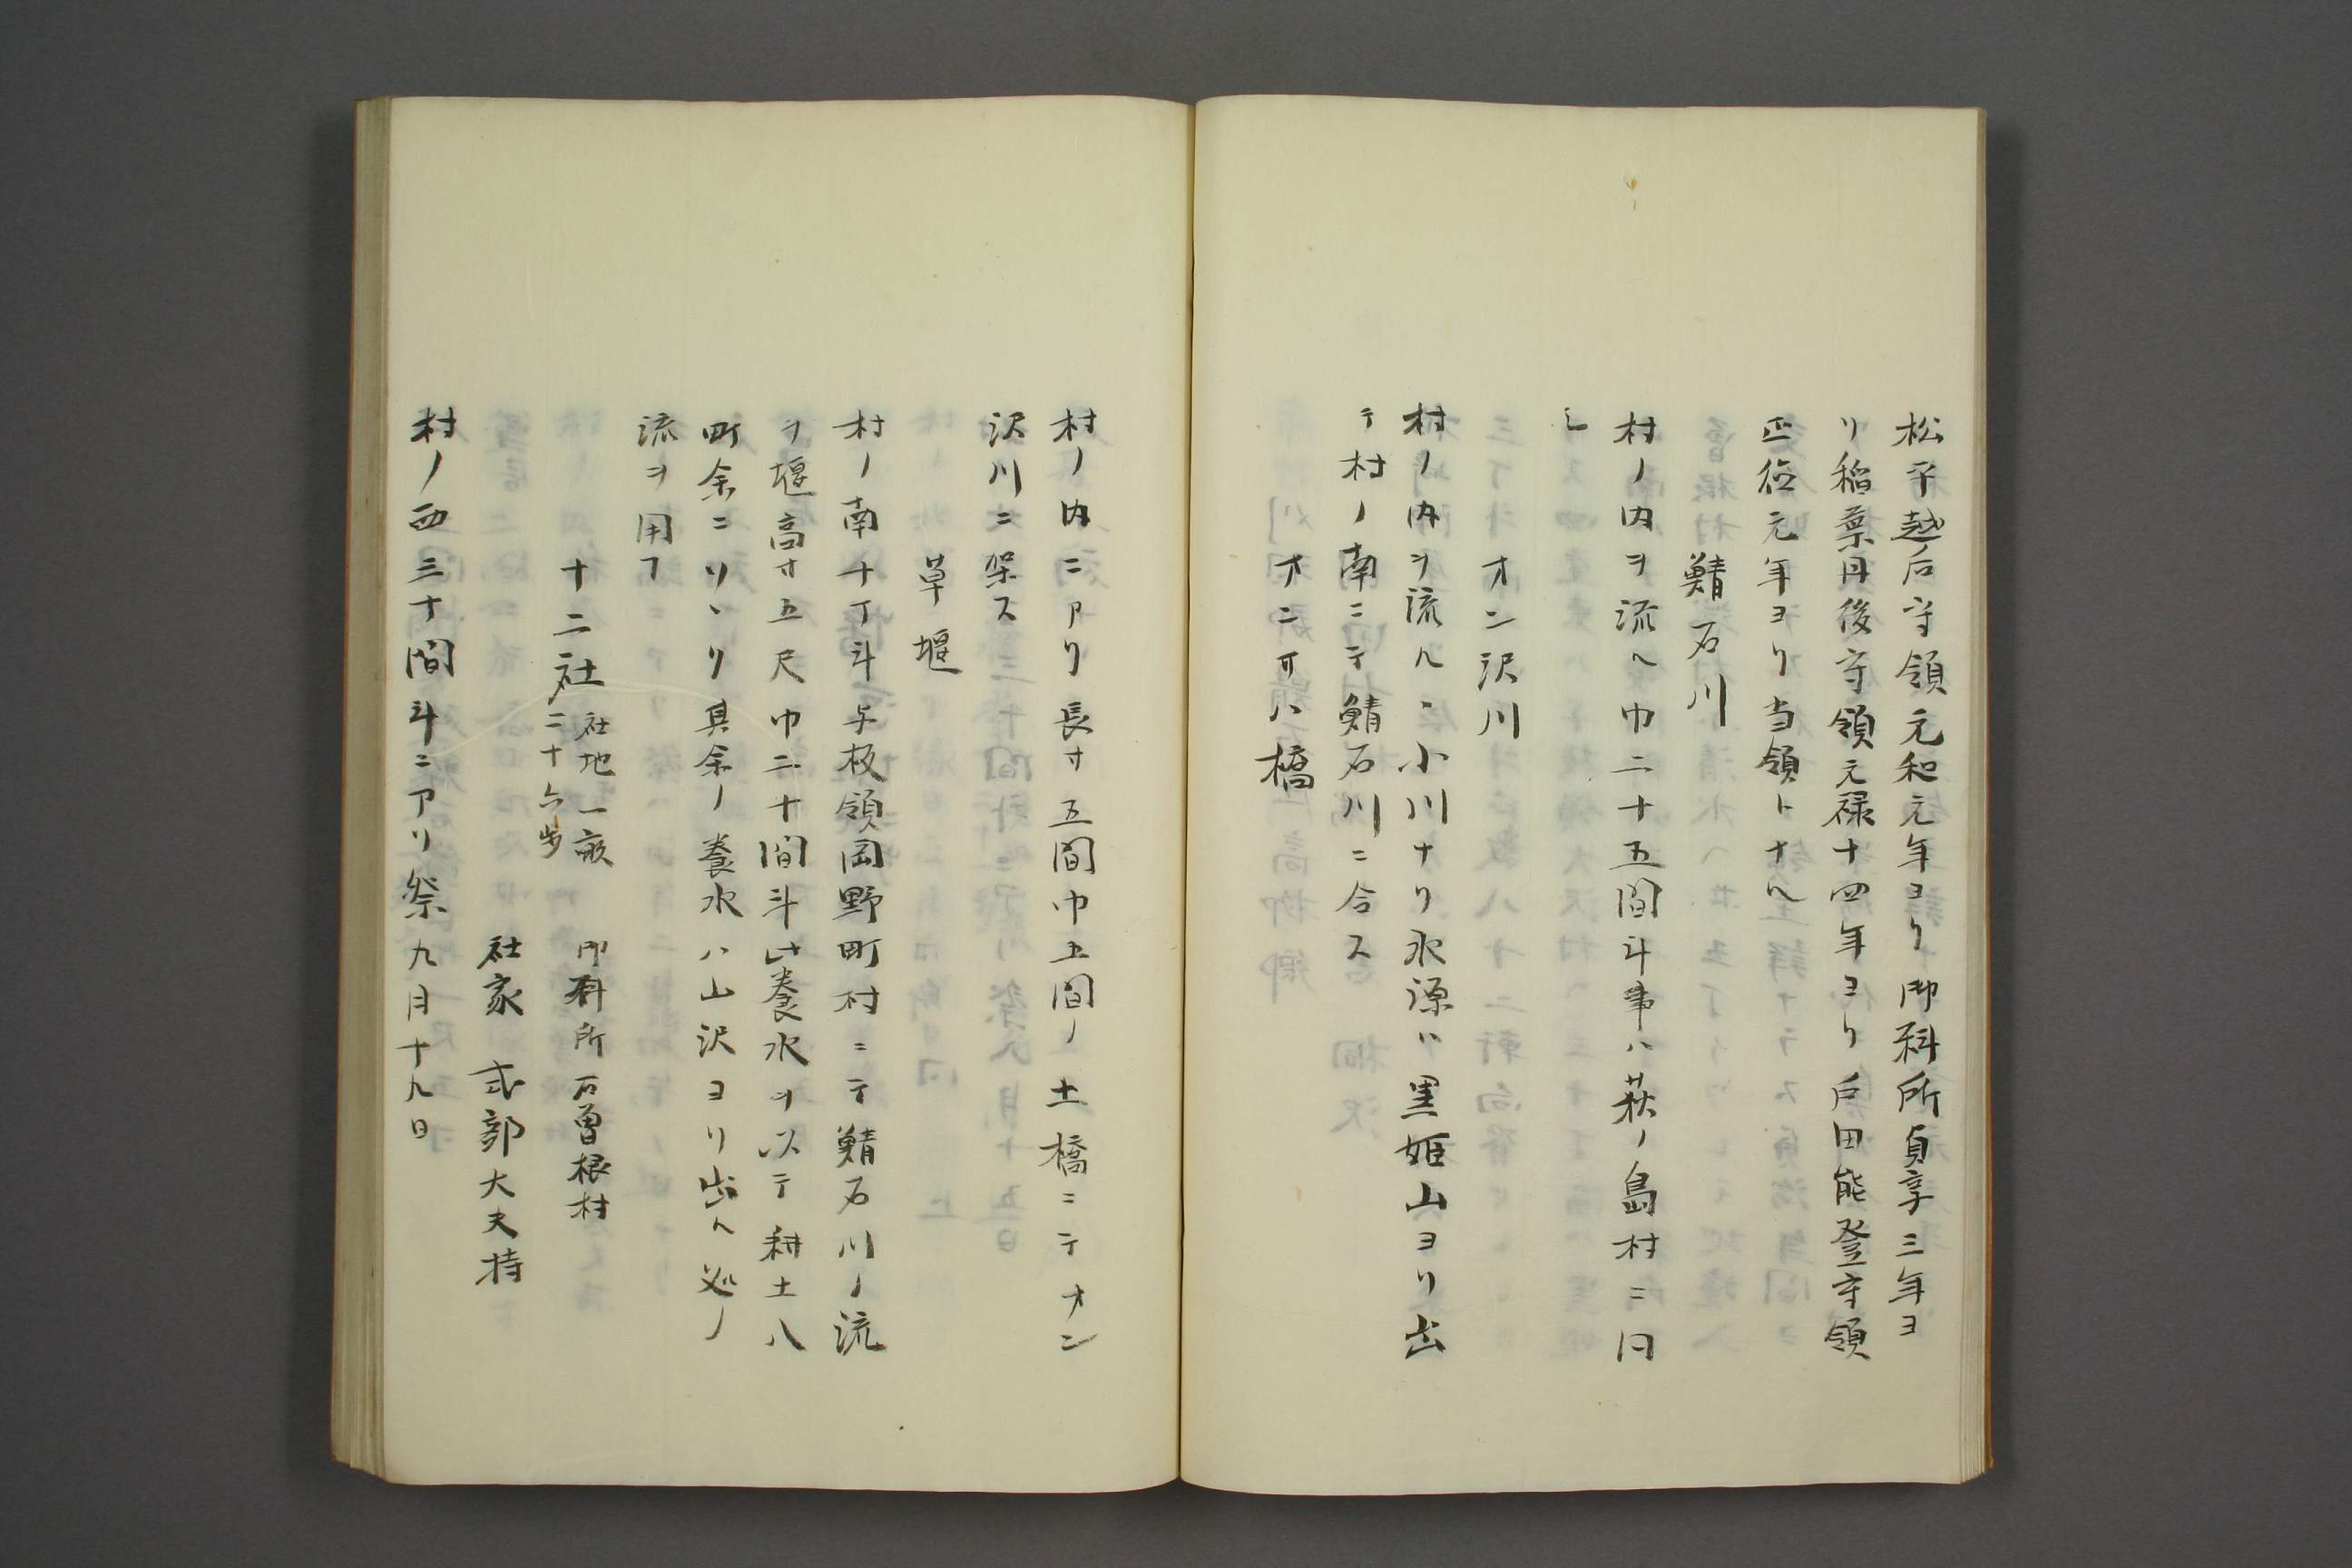 松平越后守領元和元年ヨリ御料所貞享三年ヨ
リ稲葉丹後守領元禄十四年ヨリ戸田能登守領
正徳元年ヨリ当領トナル
鯖石川
村ノ内ヲ流ル巾二十五間斗事ハ萩ノ島村ニ同
シ
オン沢川
村ノ内ヲ流ルヽ小川ナリ水源ハ黒姫山ヨリ出
テ村ノ南ニテ鯖石川ニ合ス
オンサハ橋
村ノ内ニアリ長サ五間巾五間ノ土橋ニテオン
沢川ニ架ス
草堰
村ノ南十丁斗与板領岡野町村ニテ鯖石川ノ流
ヲ堰高サ五尺巾二十間斗此養水ヲ以テ耕土八
町余ニソヽリ其余ノ養水ハ山沢ヨリ出ル処ノ
流ヲ用フ
十二社 社地一畝二十六歩 御料所石曽根村
社家 式部大夫持
村ノ西三十間斗ニアリ祭九月十九日